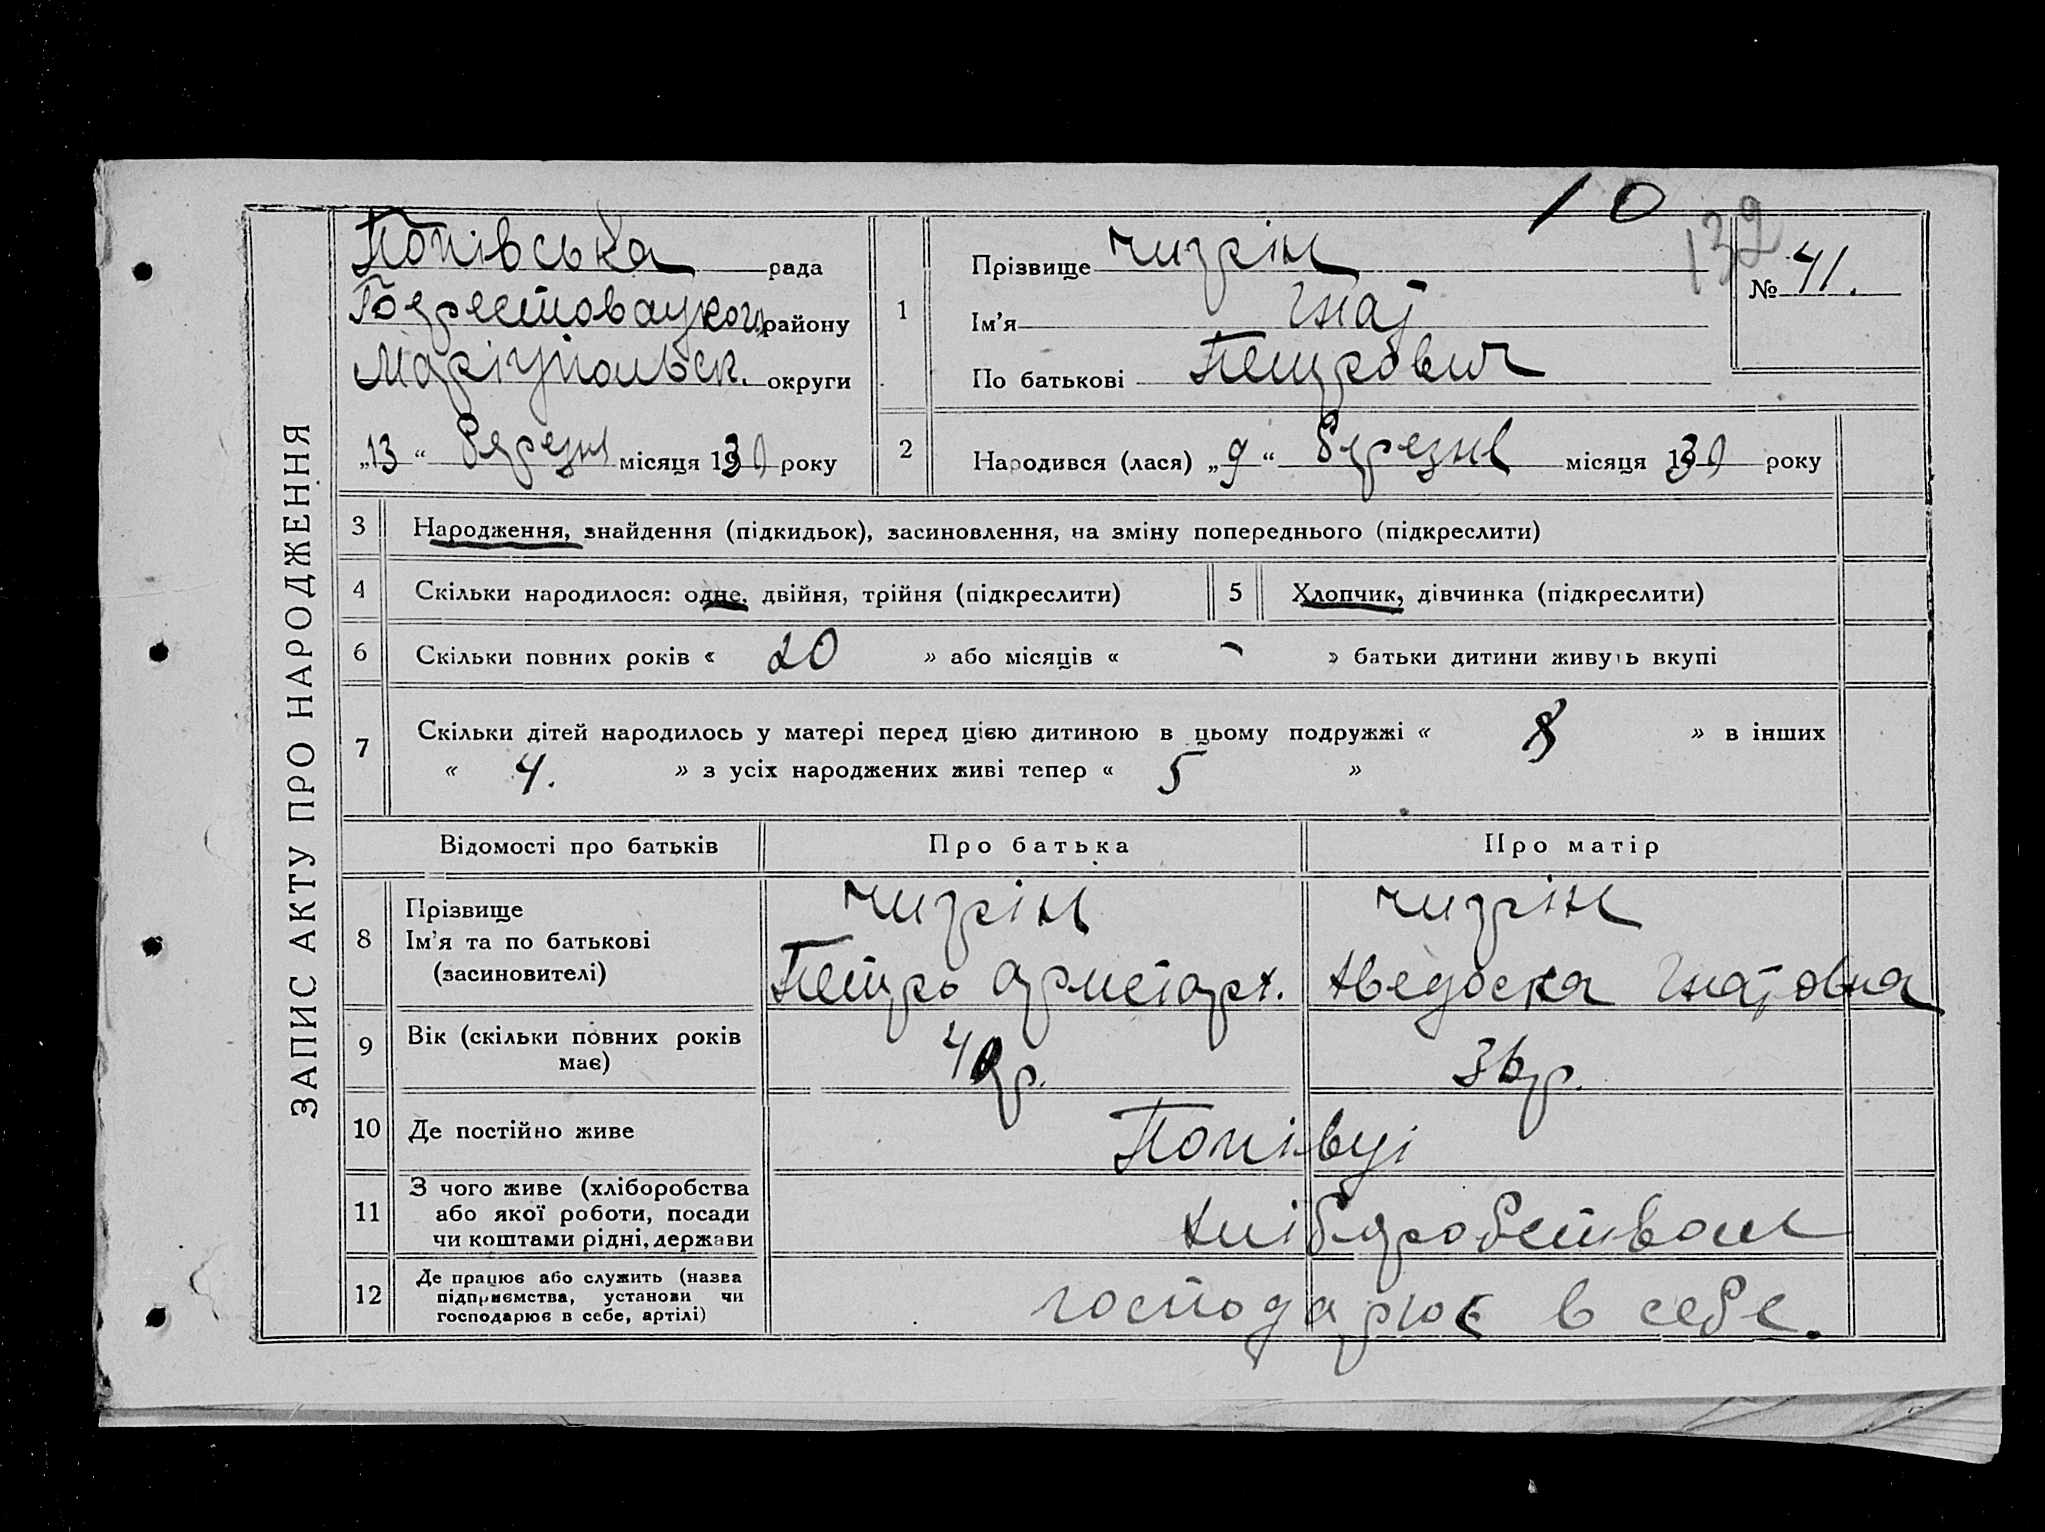 10
132
ЗАПИС АКТУ ПРО НАРОДЖЕННЯ
Попівська рада
району
Маріупольськ. округи
„13“ березня місяця 1930 року
1
Прізвище Чигрін
Ім'я Гнат
По батькові Петрович
№ 41.
2
Народився (лася) „9“ березня місяця 1930 року
3 Народження, знайдення (підкидьок), засиновлення, на зміну попереднього (підкреслити)
4 Скільки народилося: одне, двійня, трійня (підкреслити)
5 Хлопчик, дівчинка (підкреслити)
6 Скільки повних років « 20 » або місяців « - » батьки дитини живуть вкупі
7 Скільки дітей народилось у матері перед цією дитиною в цьому подружжі « » в інших
« 4. » з усіх народжених живі тепер « 5 »
Відомості про батьків Про батька Про матір
8
Прізвище
Ім'я та по батькові
(засиновителі)
Чигрін
Петро Аристарх.
Чигрін
Гнатовна
9
Вік (скільки повних років
має)
36 р.
10 Де постійно живе Попівці
11
З чого живе (хліборобства
або якої роботи, посади
чи коштами рідні, держави
хлібяробством
12
Де працює або служить (назва
підприємства, установи чи
господарює в себе, артілі)
господарює в себе.